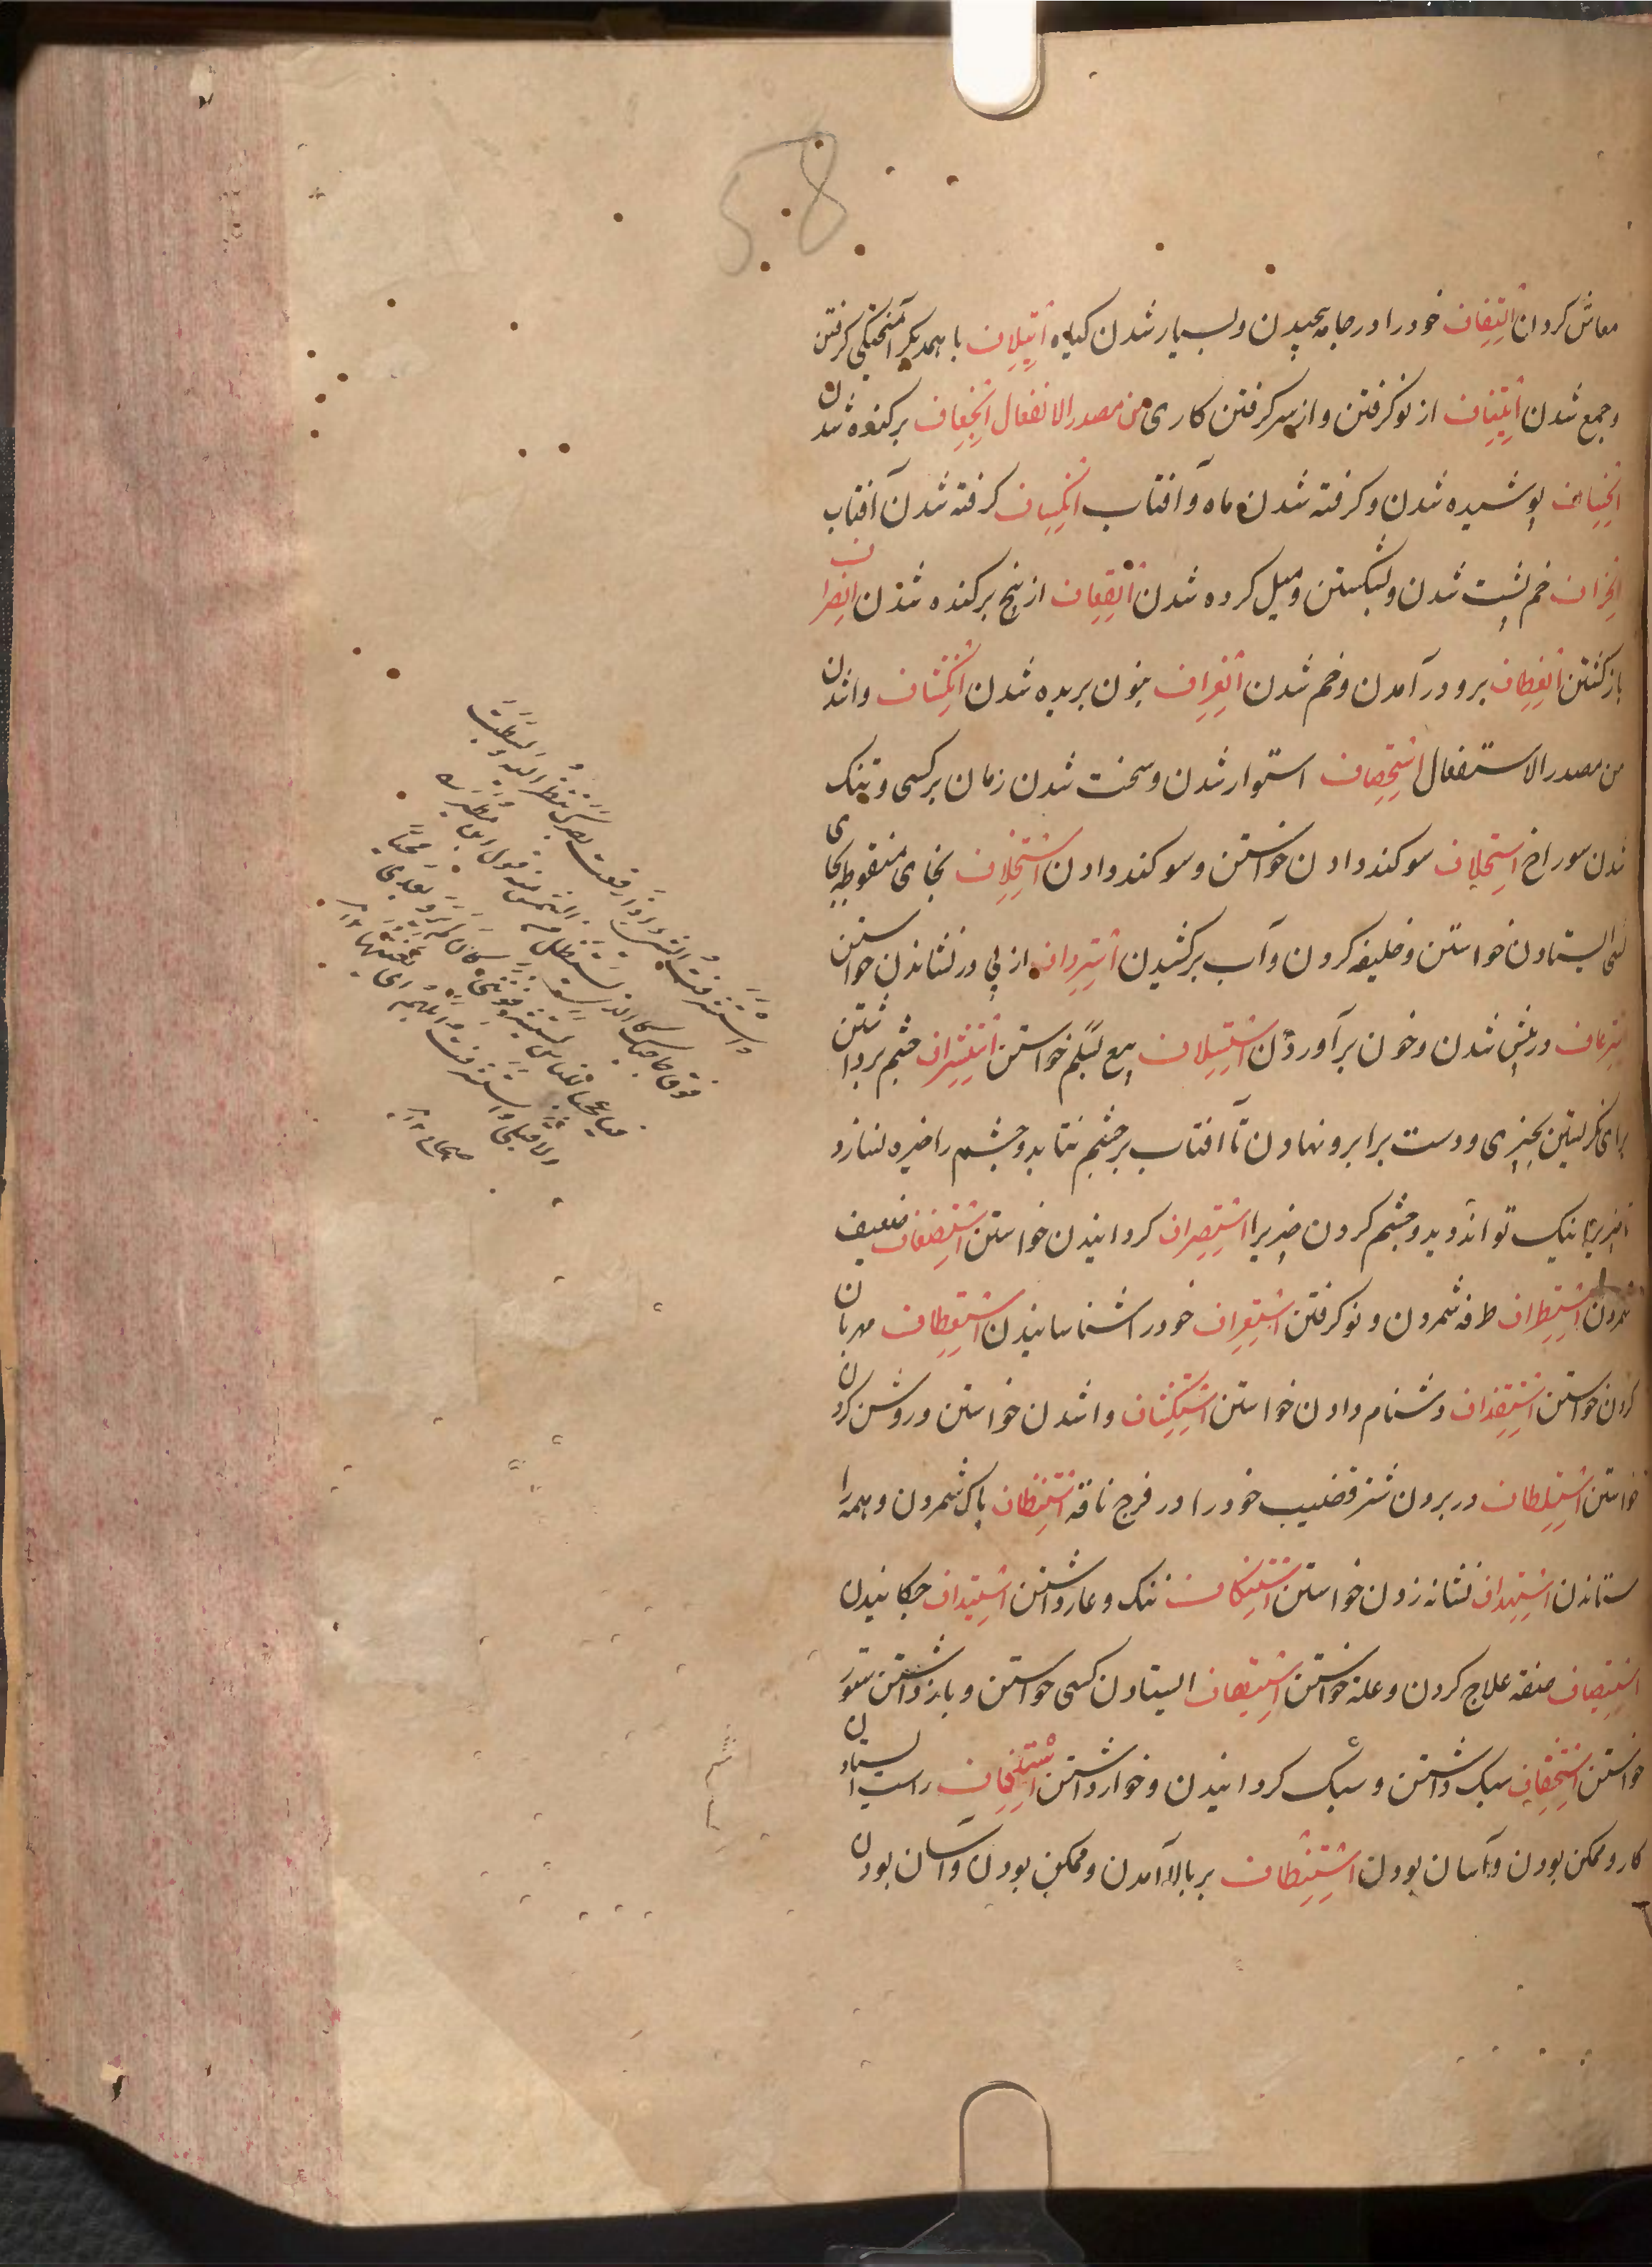 58
معاش کردن اِلتِفاف خود را در جامه پیچیدن و بسیار شدن کیاه اِیتِلاف با همدیکر آمیختکی کرفتن
و جمع شدن اِیتِناف از نو کرفتن و از سر کرفتن کاری من مصدر الانفعال اِنجِعاف برکنده شدن
اِنخِساف پوشیده شدن و کرفته شدن ماه و آفتاب اِنکِساف کرفته شدن آفتاب
خم پشت شدن و بشکستن و میل کرده شدن اِنقِعاف از بیخ برکنده شدن اِنصِراف
بازکشتن اِنعِطاف برو در آمدن و خم شدن اِنغِراف بنون بریده شدن اِنکِشاف واشدن
من مصدر الاستفعال اِستِحصاف استوار شدن و سخت شدن زمان بر کسی و تنک
شدن سوراخ اِستِحلاف سوکند دادن خواستن و سوکند دادن اِستِخلاف بخای منقوطه بجای
کسی ایستادن خواستن و خلیفه کردن و آب برکشیدن اِستِرداف از پی در نشاندن خواستن
اِستِرعاف در پیش شدن و خون برآوردن اِستِسلاف بیع سلم خواستن اِستِشراف چشم برداشتن
برای نکریستن بچیزی و دست برابرو نهادن تا آفتاب بر چشم نتابد و چشم را خیره نسازد
تا چیز را نیک تواند دید و چشم کردن چیز را اِستِصراف کردانیدن خواستن اِستِضعاف ضعیف
شمردن اِستِطراف طرفه شمردن و نو کرفتن اِستِعراف خود را شناسانیدن اِستِعطاف مهربان
کردن خواستن اِستِقذاف دشنام دادن خواستن اِستِکشاف واشدن خواستن و روشن کردن
خواستن اِستِلطاف در بردن شتر قضیب خود را در فرج ناقه اِستِنظاف پاک شمردن و همه را
ستاندن اِستِهداف نشانه زدن خواستن اِستِنکاف ننک و عار داشتن اِستِیداف چکانیدن
اِستِیصاف صفة علاج کردن و علة خواستن اِستِیقاف ایستادن کسی خواستن و باز داشتن ستور
خواستن اِستِخفاف سبک داشتن و سبک کردانیدن و خوار داشتن راست ایستادن
کار و ممکن بودن و آسان بودن بر بالا آمدن و ممکن بودن و آسان بودن
واستشرفت الشئ اذا رفعت بصرک تنظر الیه وبسطت
فوق حاجبک کالذی یستظل من الشمس منه قول ابن مطیر
فیا عجبا للناس یستشرفوننی کان لم یروا بعدی محبا
ولا قبلی واستشرفت
صحاح ۱۲